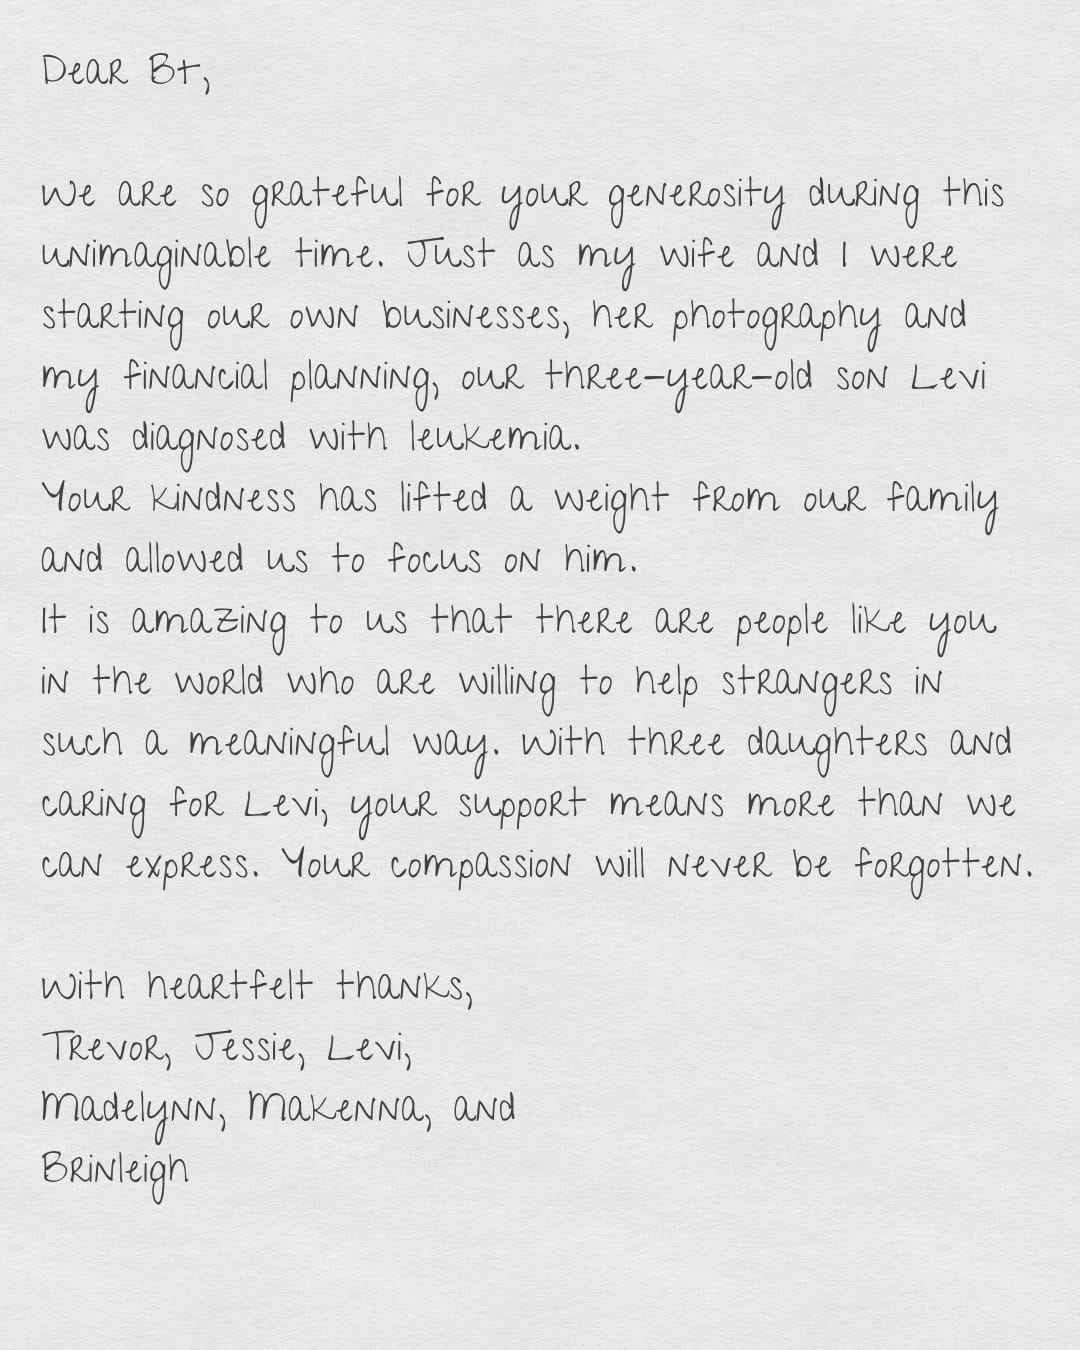 Dear Bt,
We are so grateful for your generosity during this
unimaginable time. Just as my wife and I were
starting our own businesses, her photography and
my financial planning, our three-year-old son Levi
was diagnosed with leukemia.
Your kindness has lifted a weight from our family
and allowed us to focus on him.
It is amazing to us that there are people like you
in the world who are willing to help strangers in
such a meaningful way. With three daughters and
caring for Levi, your support means more than we
can express. Your compassion will never be forgotten.
With heartfelt thanks,
Trevor, Jessie, Levi,
Madelynn, Makenna, and
Brinleigh